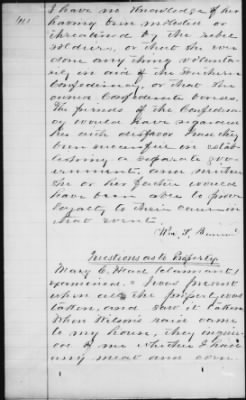 I have no knowledge of her
having been molested or
threatened by the rebel
soldiers, or that she ever
done any thing volunta-
rily in aid of the Southern
Confederacy, or that she
owned Confederate bonds.
The friends of the Confedera-
cy would have regarded
her with disfavor had they
been successful in estab-
lishing a separate gov-
ernment, and neither
she or her father would
have been able to prove
loyalty to their cause in
that event.
Wm. S.
Questions as to Property
Mary C. Hard Claimant
examined - I was present
when all the property was
taken, and saw it taken
When Wilson's raid came
to my house, they inquir-
ed of me whether I had
any meat and corn